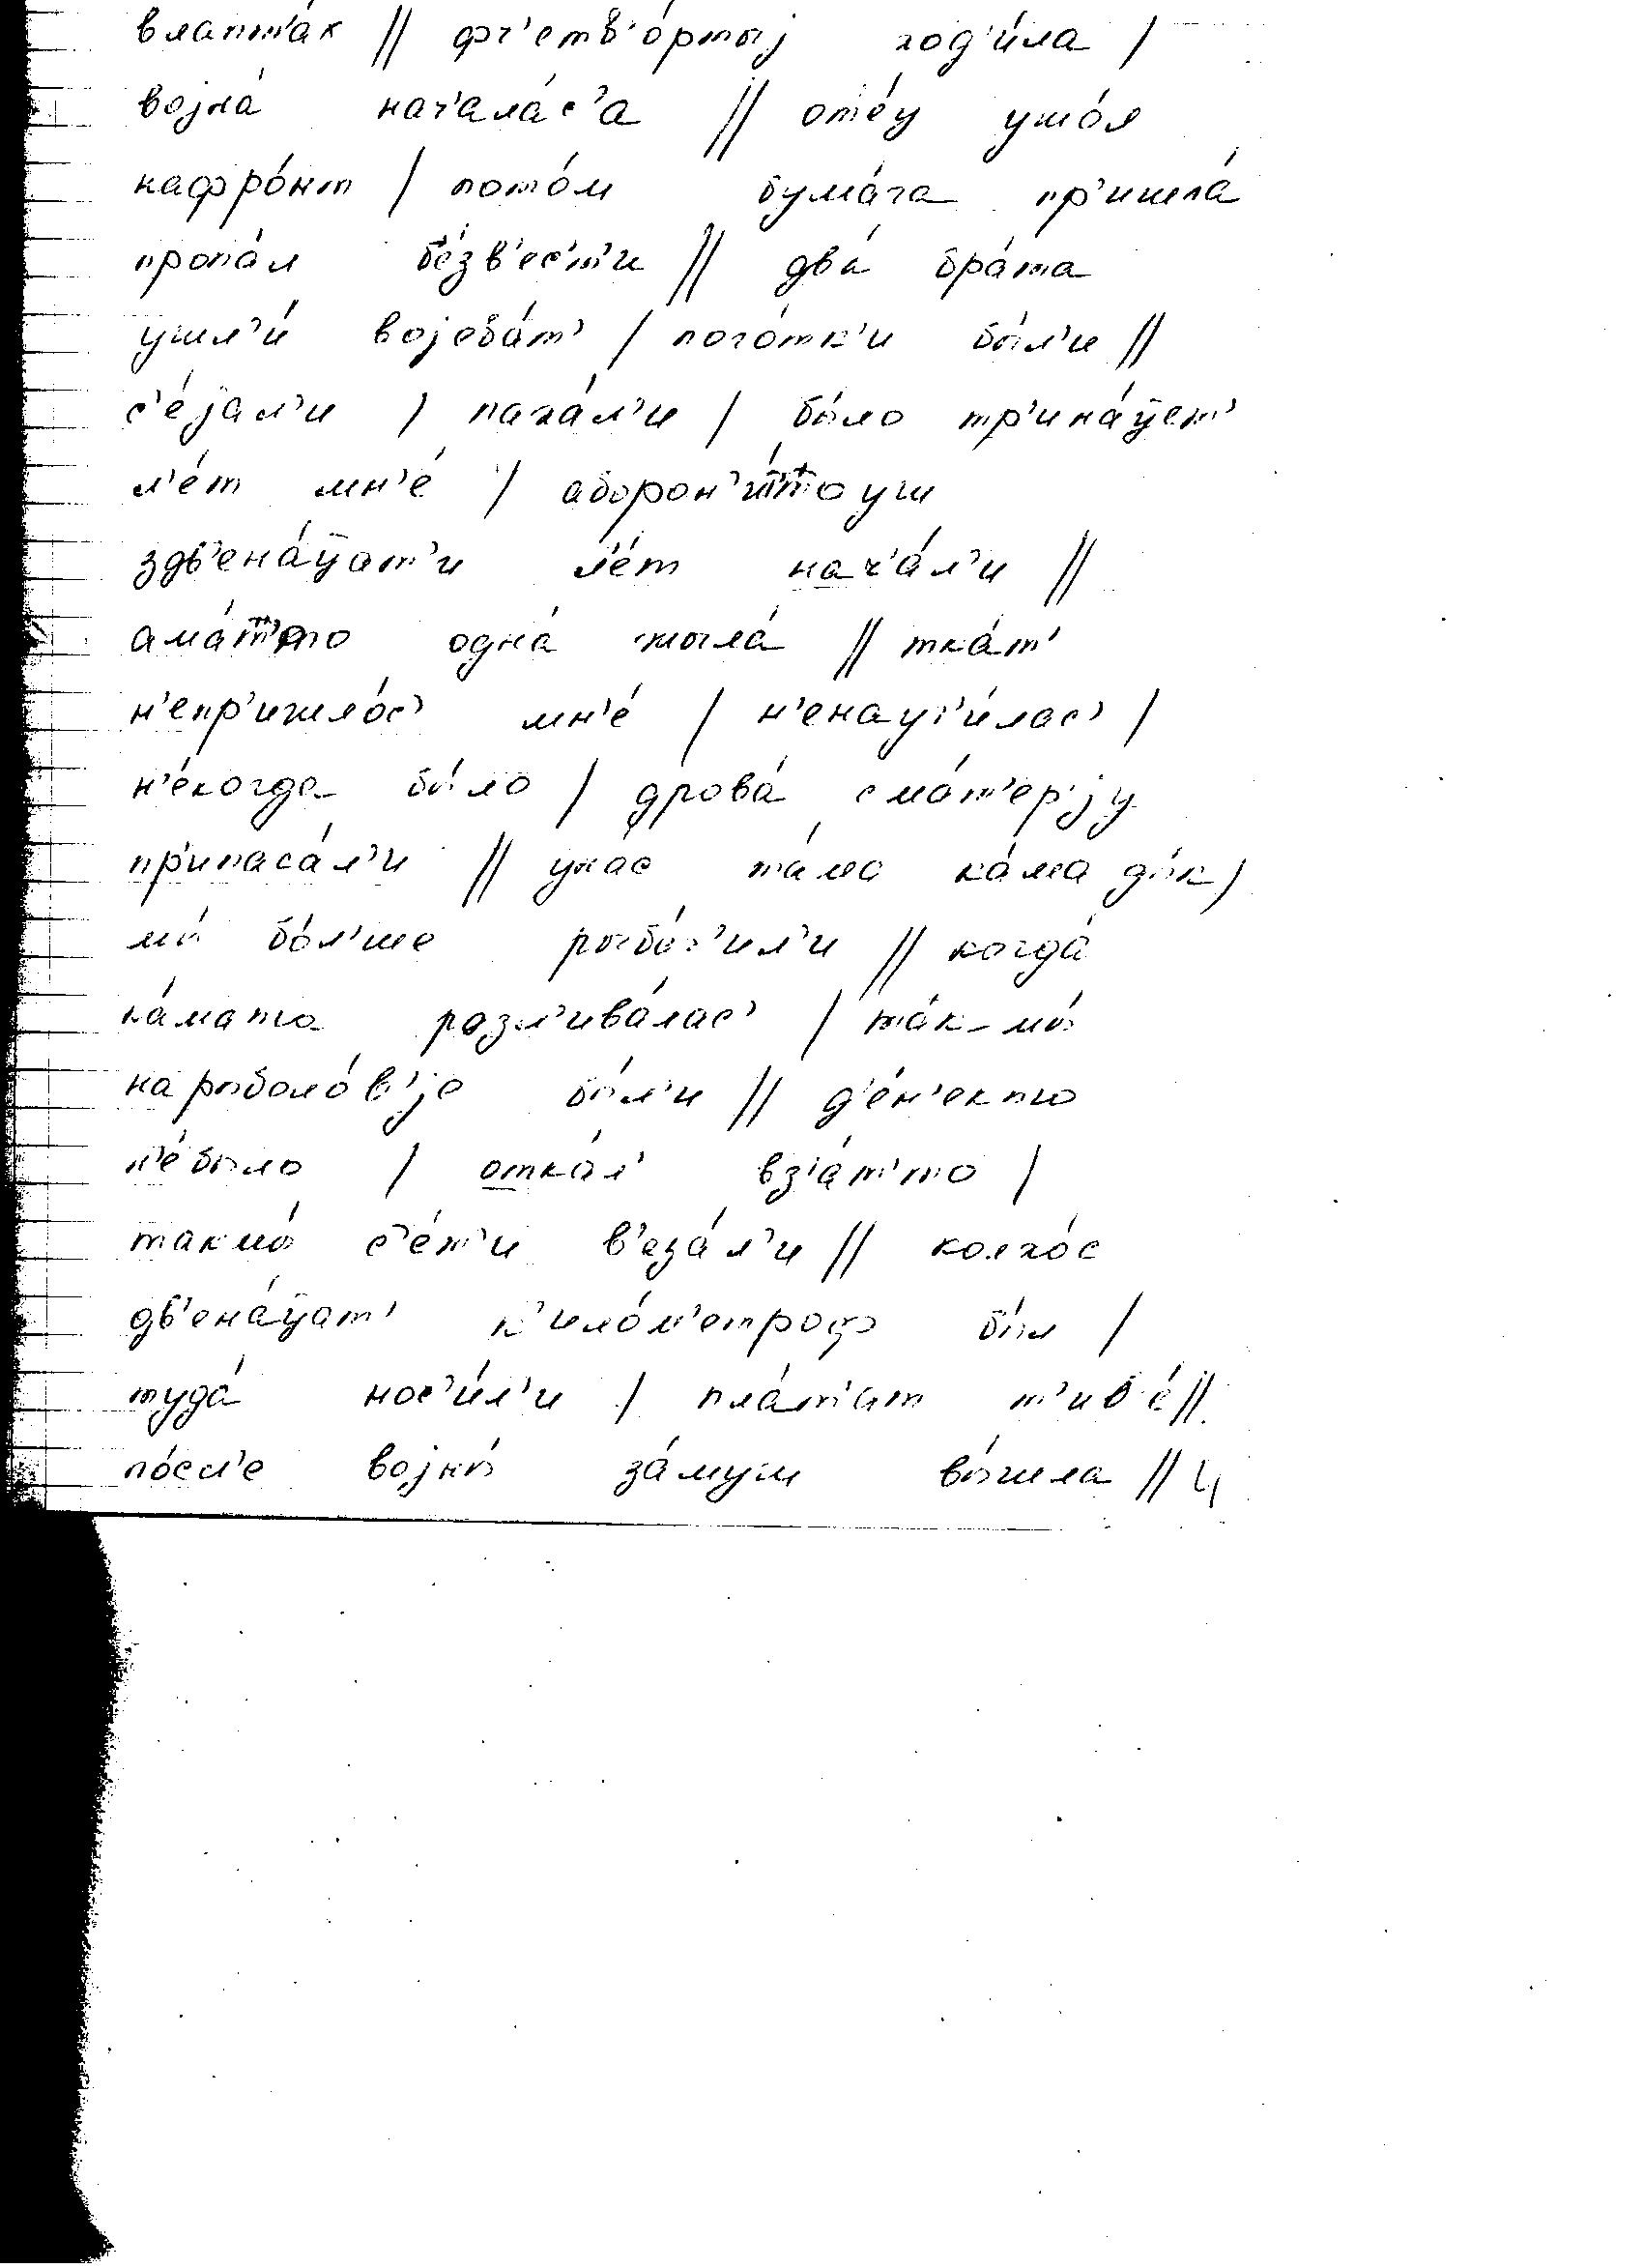 влапт'áх // фч'етв'óртыj ход'и́ла /
воjнá нач'алáс'а // отéц ушóл
нафрóнт / потóм бумáга пр'ишлá
пропáл б'éзв'ес'т'и // двá брáта
ушл'и́ воjевáт' / погóтк'и бы́л'и //
с'éjал'и / пахáл'и / бы́ло тр'инáц̄ет'
л'éт мн'é / аборон'и́т'то уш
здв'енáц̄ат'и л'éт нач'áл'и //
амáт'то однá жылá // ткáт'
н'епр'ишлóс' мн'é / н'енауч'и́лас' /
н'éкогда бы́ло / дровá смáт'ер'jу
пр'ипасáл'и // унáс тáмо кáма ды́к /
мы́ бóл'ше рыбáч'ил'и // когдá
кáмато разл'ивáлас' / тáк-мы́
нарыболóв'jе бы́л'и // д'éн'екто
н'éбыло / откóл' вз'áт'то /
такмы́ с'éт'и в'езáл'и // колхóс
дв'енáц̄ат' к'илóм'етроф бы́л /
тудá нос'и́л'и / плáт'ат т'иб'é //
пóсл'е воjны́ зáмуш вы́шла // 4